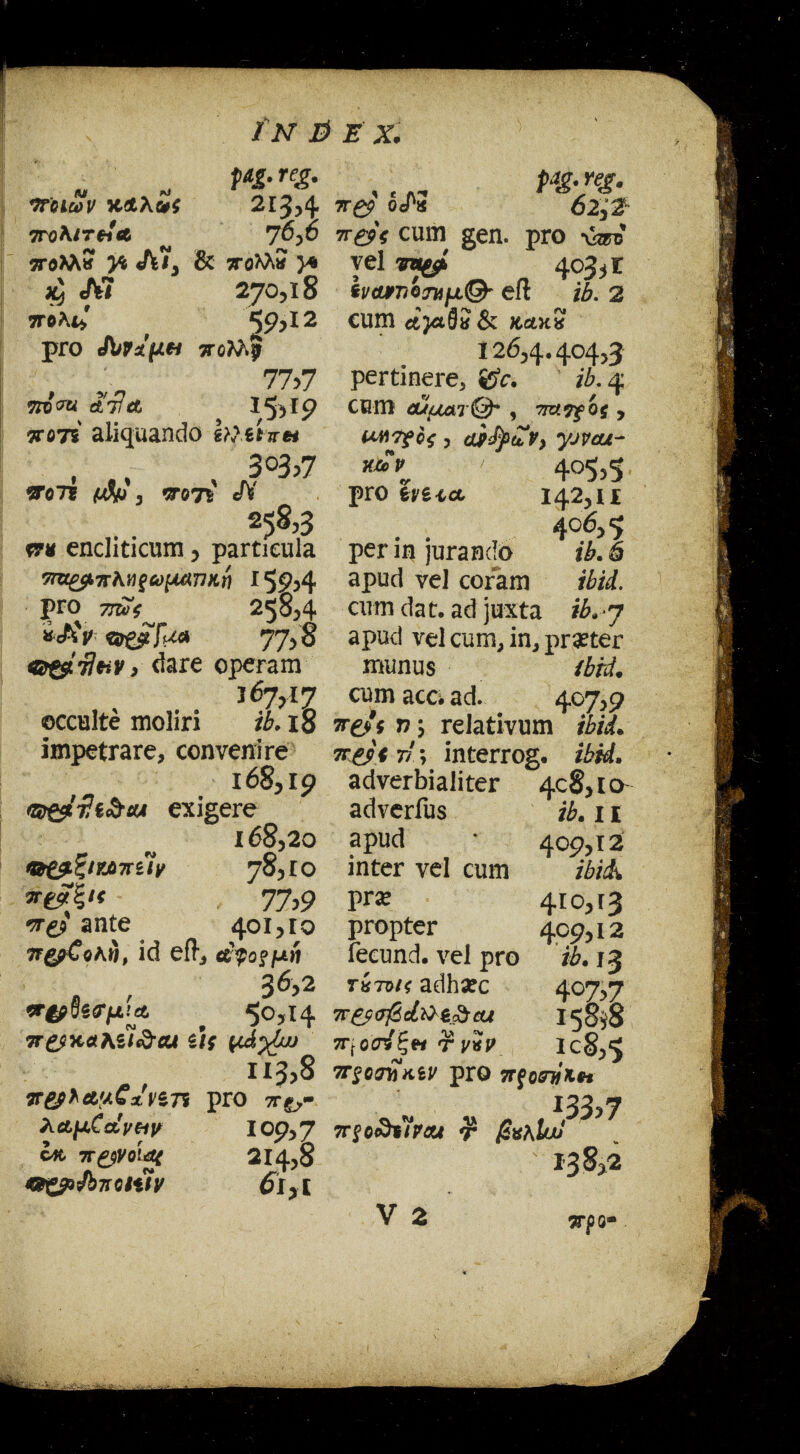 INDEX.
pag. reg.
ποιῶν καλῶς 213,4
πολιτεία 76,6
πολλοῦ γε δεῖ, & πολλοῦ γε
καὶ δεῖ 270,18
πολὺ 59,12
pro δυνάμει πολλῇ
77,7
πόσα ἄττα 15,19
ποτὲ aliquando ἐλλείπει
303,7
ποτὲ μὲν, ποτὲ δὲ
258,3
που encliticum, particula
παραπληρωματικὴ 159,4
pro πῶς 258,4
οὐδὲν πρᾶγμα 77,8
πράττειν, dare operam
167,17
occultè moliri ib. 18
impetrare, convenire
168,19
πράττεσθαι exigere
168,20
πραξικοπεῖν 78,10
πρᾶξις 77,9
πρὸ ante 401,10
προβολὴ, id est, ἀφορμὴ
36,2
προθεσμία 50,14
προκαλεῖσθαι εἰς μάχην
113,8
προλαμβάνετε pro προ-
λαμβάνειν 109,7
ἐκ προνοίας 214,8
προοδοποιεῖν 61,1
pag. reg.
πρὸ ὁδοῦ 62,2
πρὸς cum gen. pro ὑπὸ
vel παρὰ 403,1
ἐναντιότημος est ib. 2
cum ἀγαθοῦ & κακοῦ
126,4.404,3
pertinere, &c. ib. 4
cum αἵματος, πατρὸς,
μητρὸς, ἀνδρῶν, γυναι-
κῶν 405,5
pro ἕνεκα 142,11
406,5
per in jurando ib. 6
apud vel coram ibid.
cum dat. ad juxta ib. 7
apud vel cum, in, præter
munus ibid.
cum acc. ad. 407,9
πρός τι; relativum ibid.
πρὸς τί; interrog. ibid.
adverbialiter 408,10
adversus ib. 11
apud 409,12
inter vel cum ibid.
præ 410,13
propter 409,12
secund. vel pro ib. 13
τούτοις adhæc 407,7
προσβάλλεσθαι 158,8
προσέξει τὸν νοῦν 108,5
προσῆκεν pro προσήκει
133,7
προσθεῖναι τὴν βουλὴν
138,2
V 2
προ-